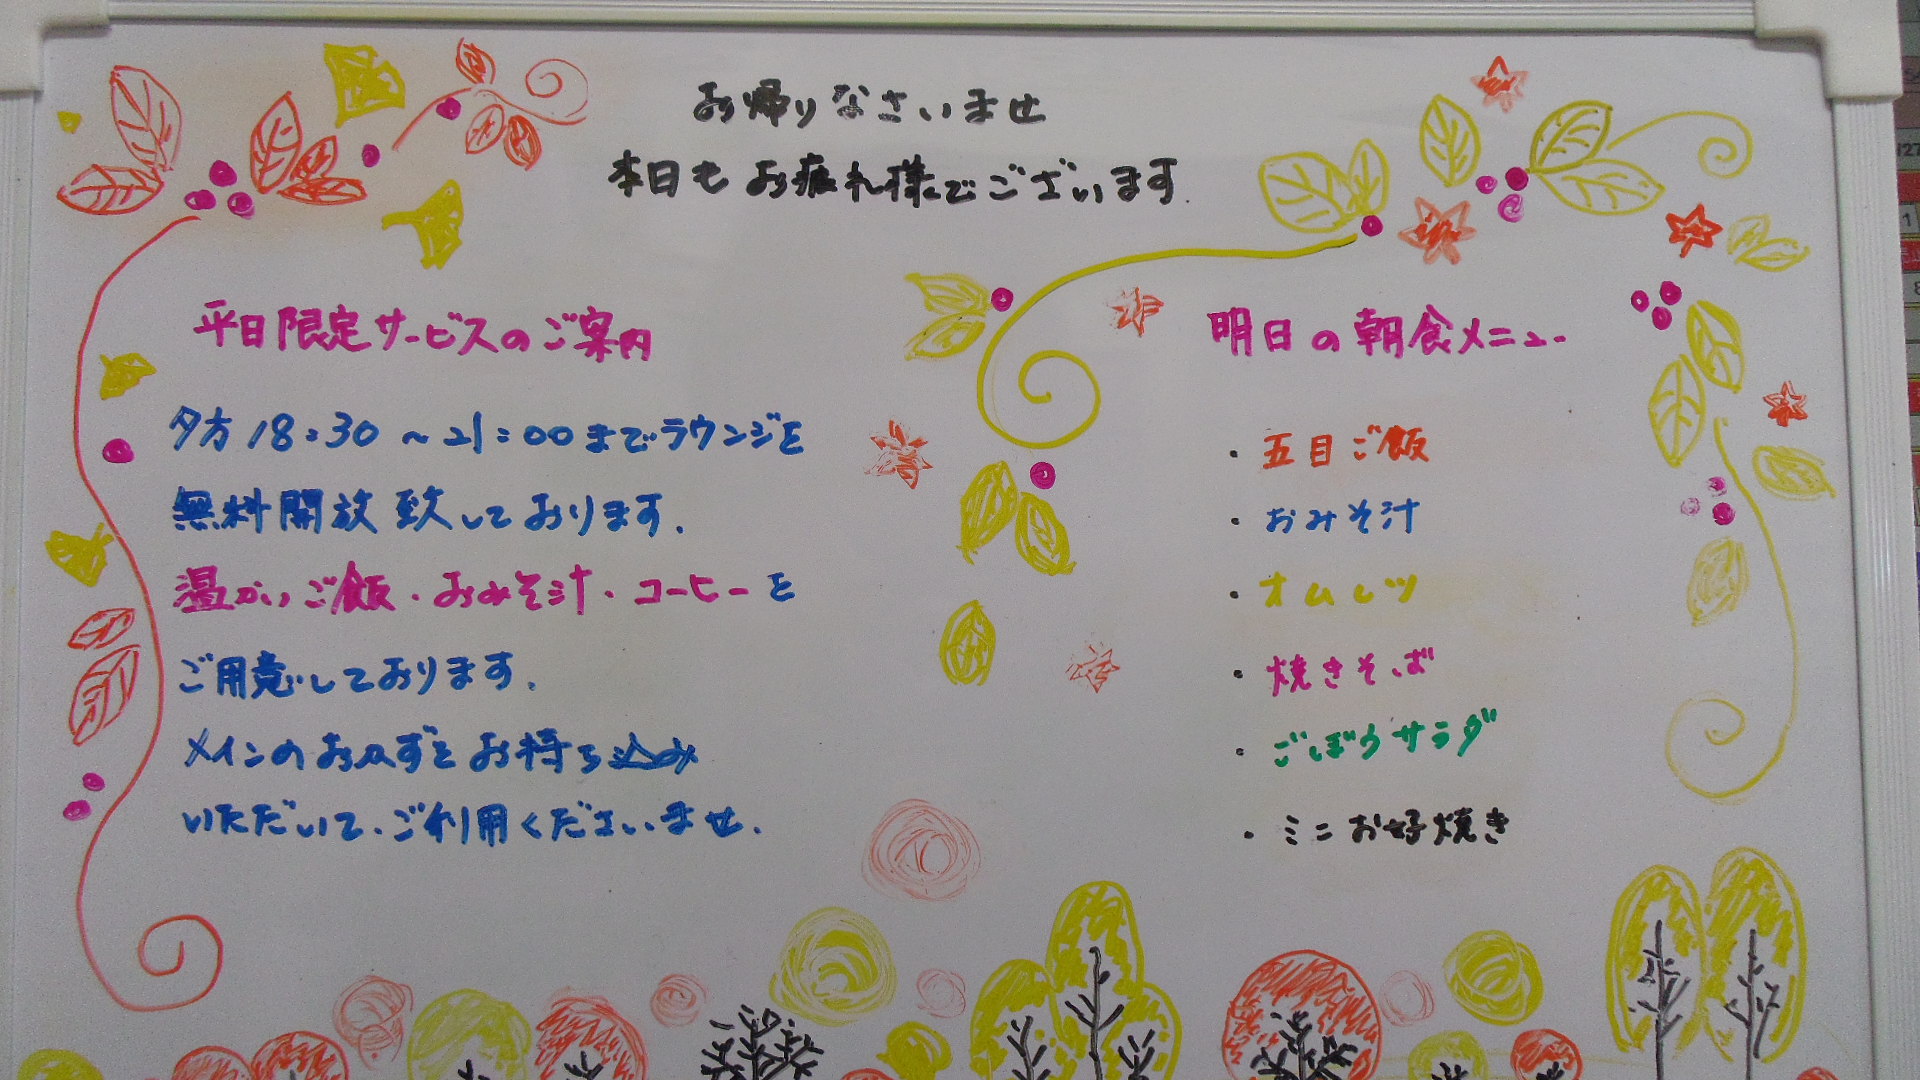 お帰りなさいませ
本日もお疲れ様でございます.
平日限定サービスのご案内
夕方18:30～21:00までラウンジを
無料開放致しております.
温かいご飯・おみそ汁・コーヒーを
ご用意しております.
メインのおかずをお持ち込み
いただいて、ご利用くださいませ.
明日の朝食メニュー
・五目ご飯
・おみそ汁
・オムレツ
・焼きそば
・ごぼうサラダ
・ミニお好焼き